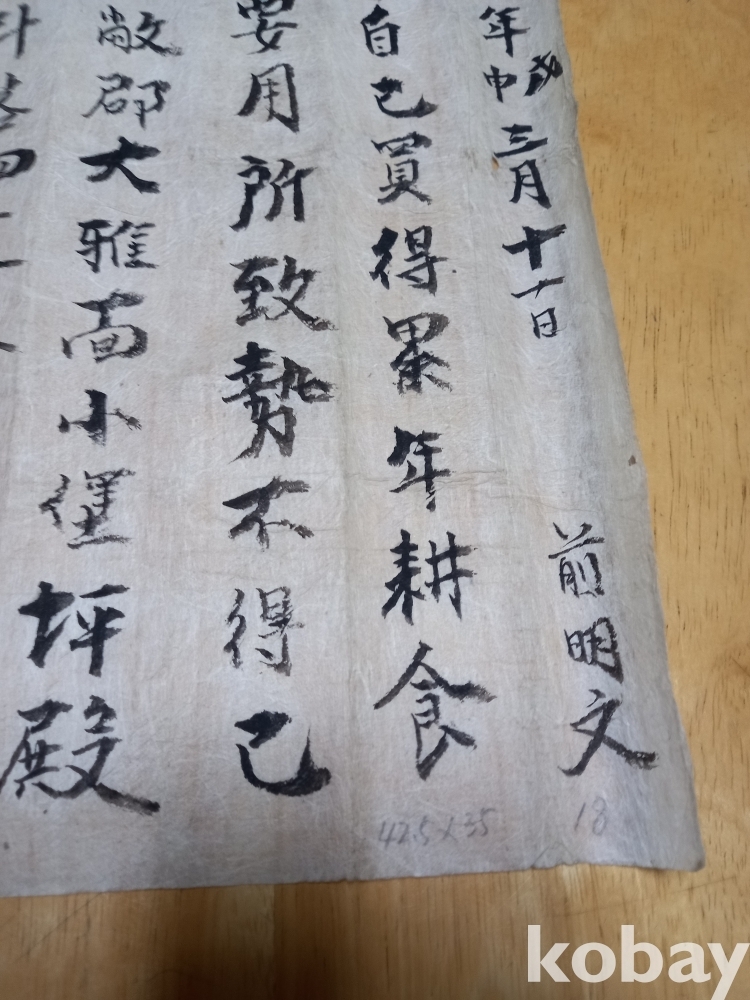 年戊申三月十一日 前明文
自己買得累年耕食
要用所致勢不得已
敞郡大雅面小堡坪殿
42.5 x 35
18
kobay